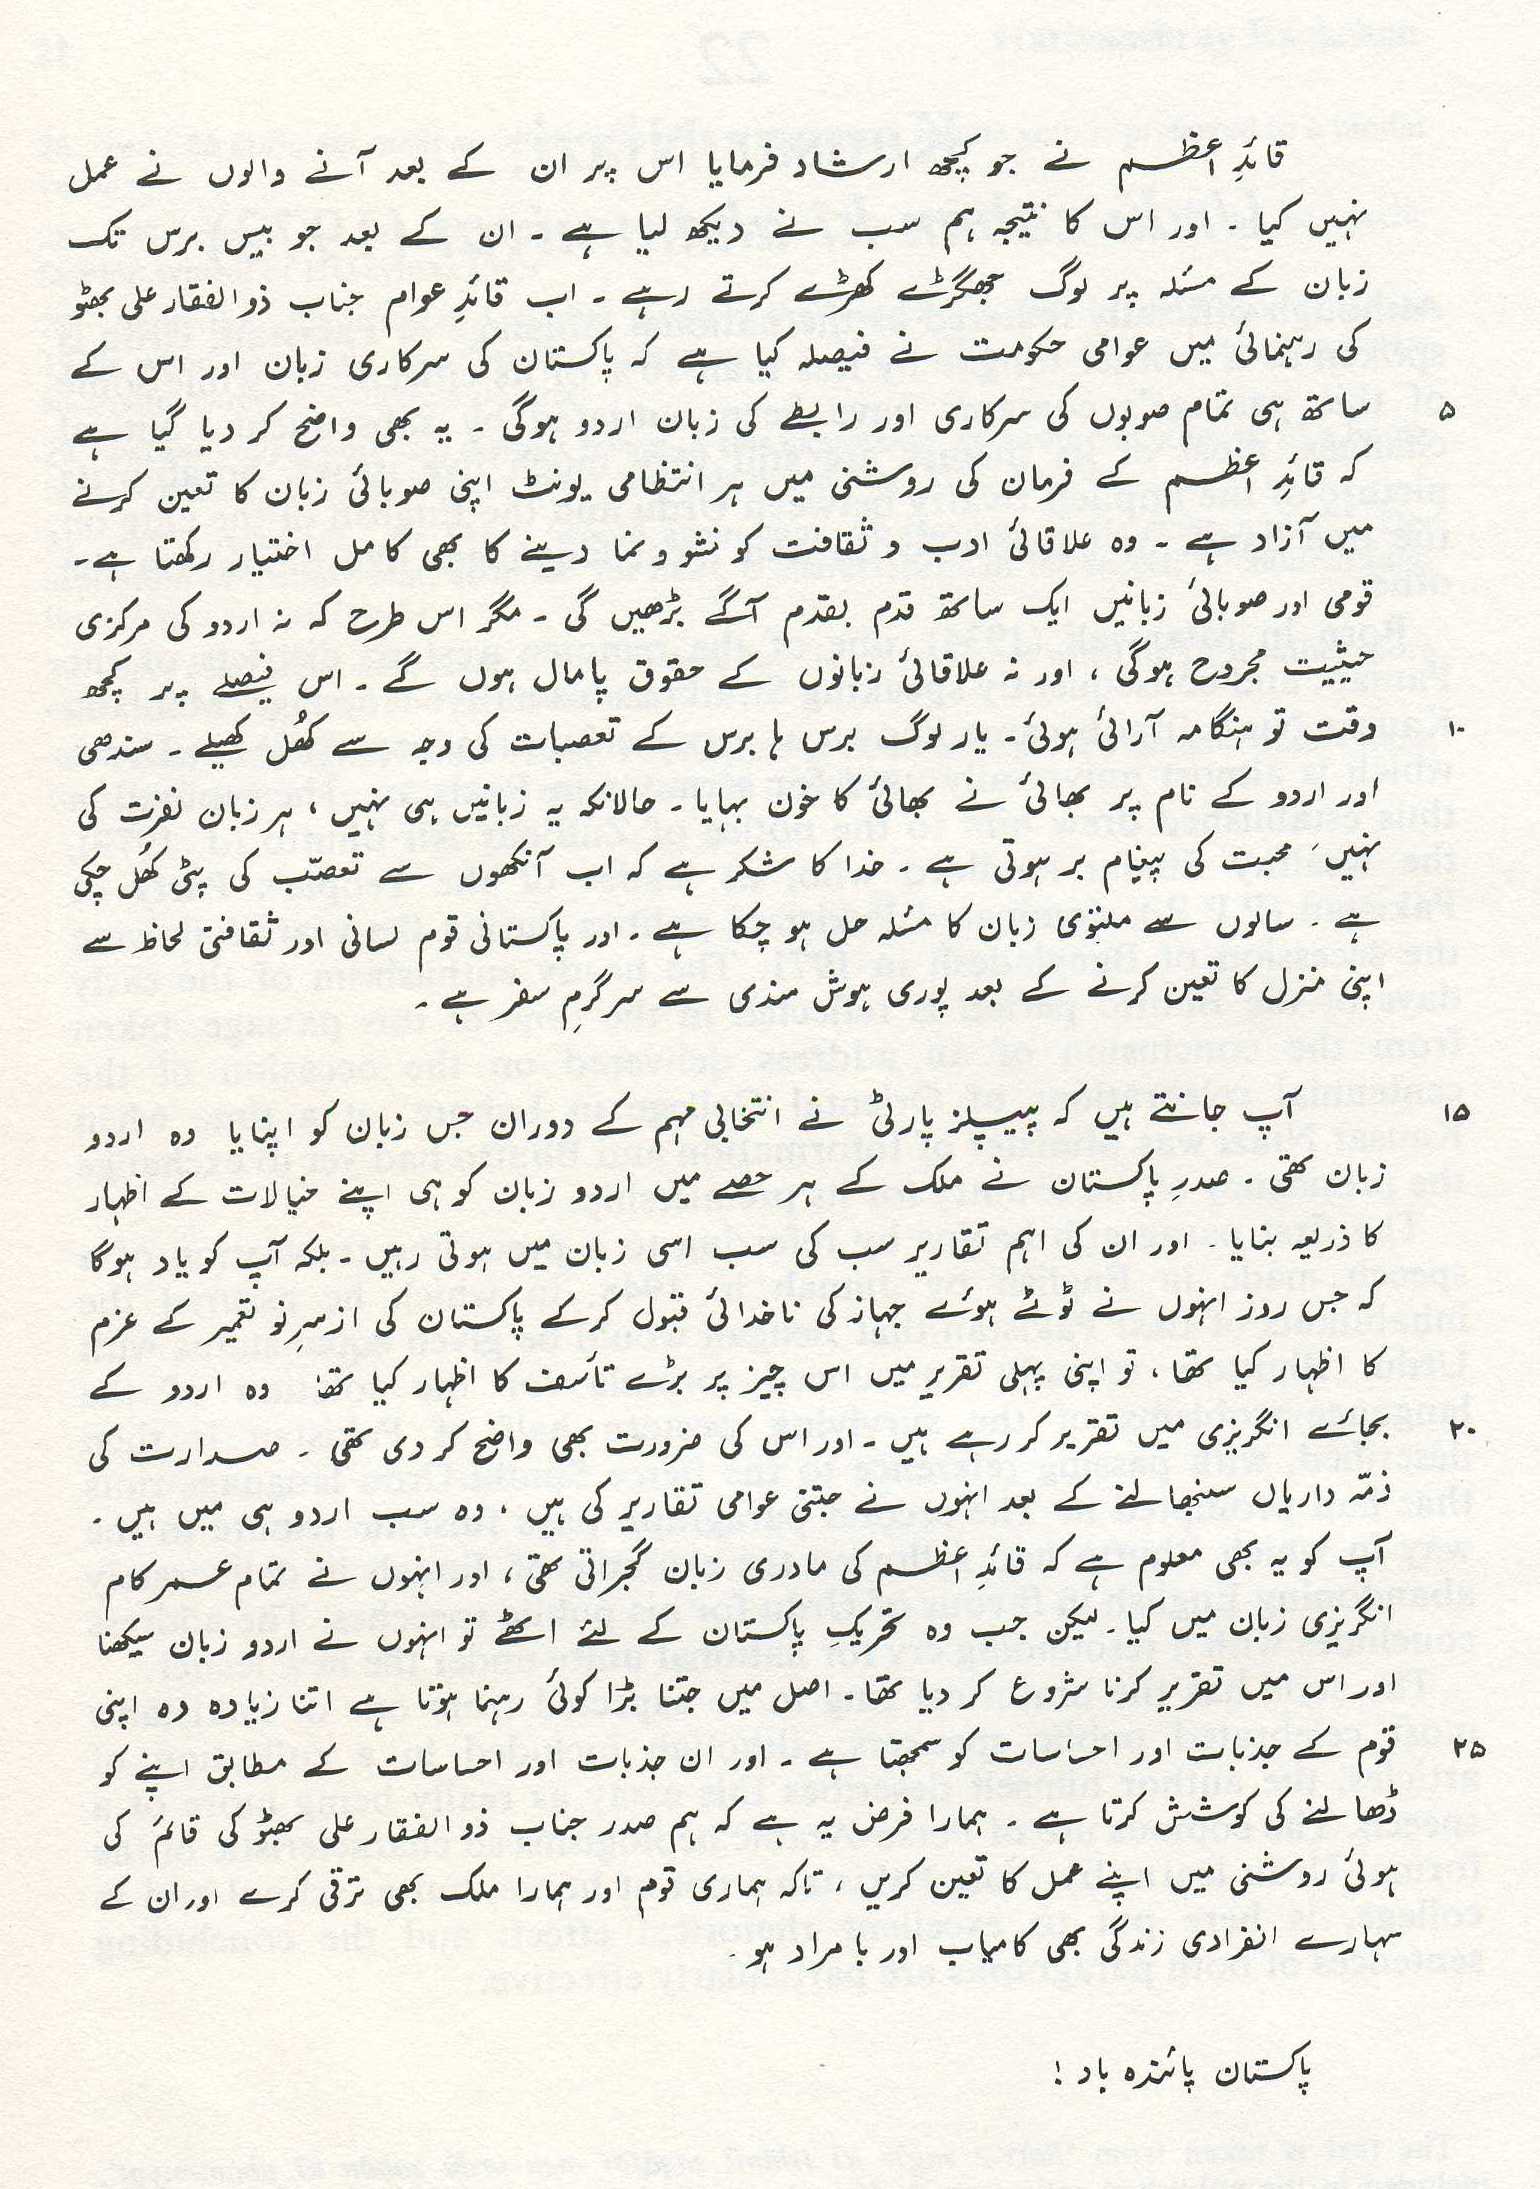 قائدِ اعظم نے جو کچھ ارشاد فرمایا اس پر ان کے بعد آنے والوں نے عمل
نہیں کیا ۔ اور اس کا نتیجہ ہم سب نے دیکھ لیا ہے ۔ ان کے بعد جو بیس برس تک
زبان کے مسئلہ پر لوگ جھگڑے کھڑے کرتے رہے ۔ اب قائدِ عوام جناب ذوالفقار علی بھٹو
کی رہنمائی میں عوامی حکومت نے فیصلہ کیا ہے کہ پاکستان کی سرکاری زبان اور اس کے
۵ ساتھ ہی تمام صوبوں کی سرکاری اور رابطے کی زبان اردو ہوگی ۔ یہ بھی واضح کر دیا گیا ہے
کہ قائدِ اعظم کے فرمان کی روشنی میں ہر انتظامی یونٹ اپنی صوبائی زبان کا تعین کرنے
میں آزاد ہے ۔ وہ علاقائی ادب و ثقافت کو نشو و نما دینے کا بھی کامل اختیار رکھتا ہے۔
قومی اور صوبائی زبانیں ایک ساتھ قدم بقدم آگے بڑھیں گی ۔ مگر اس طرح کہ نہ اردو کی مرکزی
حیثیت مجروح ہوگی ، اور نہ علاقائی زبانوں کے حقوق پامال ہوں گے ۔ اس فیصلے پر کچھ
۱۰ وقت تو ہنگامہ آرائی ہوئی۔ یار لوگ برس ہا برس کے تعصبات کی وجہ سے کھُل کھیلے ۔ سندھی
اور اردو کے نام پر بھائی نے بھائی کا خون بہایا ۔ حالانکہ یہ زبانیں ہی نہیں ، ہر زبان نفرت کی
نہیں َ محبت کی پیغام بر ہوتی ہے ۔ خدا کا شکر ہے کہ اب آنکھوں سے تعصّب کی پٹی کھُل چکی
ہے ۔ سالوں سے ملتوی زبان کا مسئلہ حل ہو چکا ہے ۔ اور پاکستانی قوم لسانی اور ثقافتی لحاظ سے
اپنی منزل کا تعین کرنے کے بعد پوری ہوش مندی سے سرگرمِ سفر ہے ۔
۱۵ آپ جانتے ہیں کہ پیپلز پارٹی نے انتخابی مہم کے دوران جس زبان کو اپنایا وہ اردو
زبان تھی ۔ صدرِ پاکستان نے ملک کے ہر حصے میں اردو زبان کو ہی اپنے خیالات کے اظہار
کا ذریعہ بنایا ۔ اور ان کی اہم تقاریر سب کی سب اسی زبان میں ہوتی رہیں ۔ بلکہ آپ کو یاد ہوگا
کہ جس روز انہوں نے ٹوٹے ہوئے جہاز کی ناخدائی قبول کرکے پاکستان کی ازسرِنو تعمیر کے عزم
کا اظہار کیا تھا ، تو اپنی پہلی تقریر میں اس چیز پر بڑے تأسف کا اظہار کیا تھا وہ اردو کے
۲۰ بجائے انگریزی میں تقریر کر رہے ہیں ۔ اور اس کی ضرورت بھی واضح کر دی تھی ۔ صدارت کی
ذمّہ داریاں سنبھالنے کے بعد انہوں نے جتنی عوامی تقاریر کی ہیں ، وہ سب اردو ہی میں ہیں ۔
آپ کو یہ بھی معلوم ہے کہ قائدِ اعظم کی مادری زبان گجراتی تھی ، اور انہوں نے تمام عمر کام
انگریزی زبان میں کیا ۔ لیکن جب وہ تحریکِ پاکستان کے لئے اٹھے تو انہوں نے اردو زبان سیکھنا
اور اس میں تقریر کرنا شروع کر دیا تھا ۔ اصل میں جتنا بڑا کوئی رہنما ہوتا ہے اتنا زیادہ وہ اپنی
۲۵ قوم کے جذبات اور احساسات کو سمجھتا ہے ۔ اور ان جذبات اور احساسات کے مطابق اپنے کو
ڈھالنے کی کوشش کرتا ہے ۔ ہمارا فرض یہ ہے کہ ہم صدر جناب ذوالفقار علی بھٹو کی قائم کی
ہوئی روشنی میں اپنے عمل کا تعین کریں ، تاکہ ہماری قوم اور ہمارا ملک بھی ترقی کرے اور ان کے
سہارے انفرادی زندگی بھی کامیاب اور بامراد ہو ۔
پاکستان پائندہ باد !